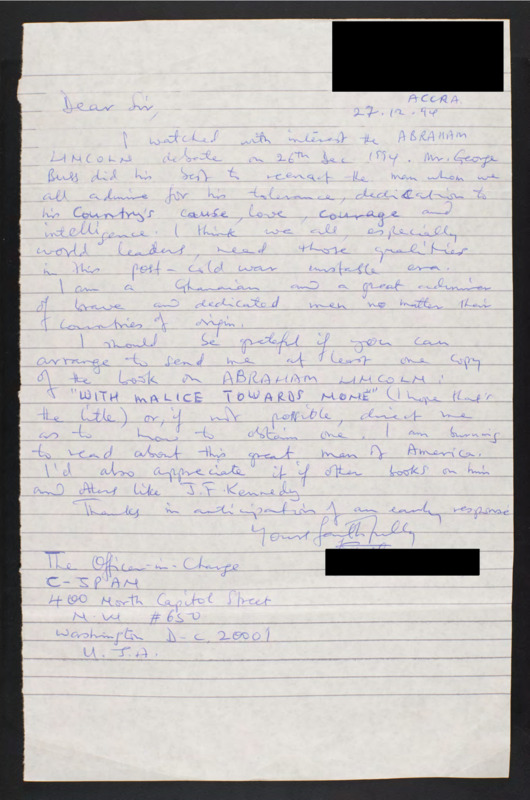 ACCRA
27.12.94
Dear Sir,
I watched with interest the ABRAHAM
LINCOLN debate on 26th Dec 1994. Mr. George
Buss did his best to reenact the man whom we
all admire for his tolerance, dedication to
his Country's cause, love, courage and
intelligence. I think we all, especially
world leaders, need those qualities
in this post-cold war unstable era.
I am a Ghanaian and a great admirer
of brave and dedicated men no matter their
countries of origin.
I should be grateful if you can
arrange to send me at least one copy
of the book on ABRAHAM LINCOLN:
"WITH MALICE TOWARDS NONE" (I hope that's
the title) or, if not possible, direct me
as to how to obtain one. I am burning
to read about this great man of America.
I'd also appreciate it if other books on him
and others like J.F. Kennedy
Thanks in anticipation of an early response
Yours faithfully
The Officer-in-Charge
C-SPAN
400 North Capitol Street
N.W #650
Washington D.C. 20001
U.S.A.